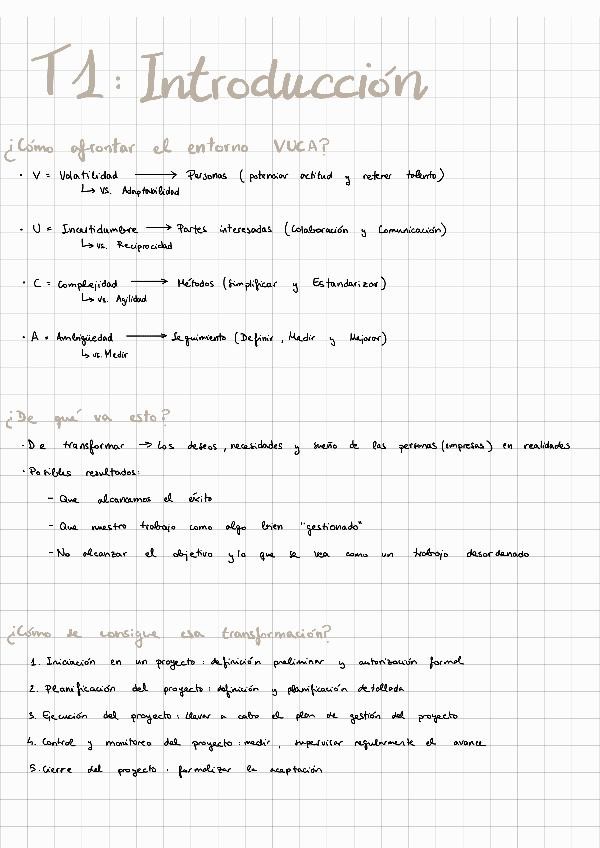 T1: Introducción
¿Cómo afrontar el entorno VUCA?
· V = Volatilidad → Personas (potenciar actitud y retener talento)
↳ vs. Adaptabilidad
· U = Incertidumbre → Partes interesadas (Colaboración y Comunicación)
↳ vs. Reciprocidad
· C = Complejidad → Métodos (simplificar y Estandarizar)
↳ vs. Agilidad
· A = Ambigüedad → Seguimiento (Definir, Medir y Mejorar)
↳ vs. Medir
¿De qué va esto?
· De transformar → Los deseos, necesidades y sueño de las personas (empresas) en realidades
· Posibles resultados:
- Que alcancemos el éxito
- Que nuestro trabajo como algo bien "gestionado"
- No alcanzar el objetivo y/o que se vea como un trabajo desordenado
¿Cómo se consigue esa transformación?
1. Iniciación en un proyecto: definición preliminar y autorización formal
2. Planificación del proyecto: definición y planificación detallada
3. Ejecución del proyecto: llevar a cabo el plan de gestión del proyecto
4. Control y monitoreo del proyecto: medir, supervisar regularmente el avance
5. Cierre del proyecto. formalizar la aceptación